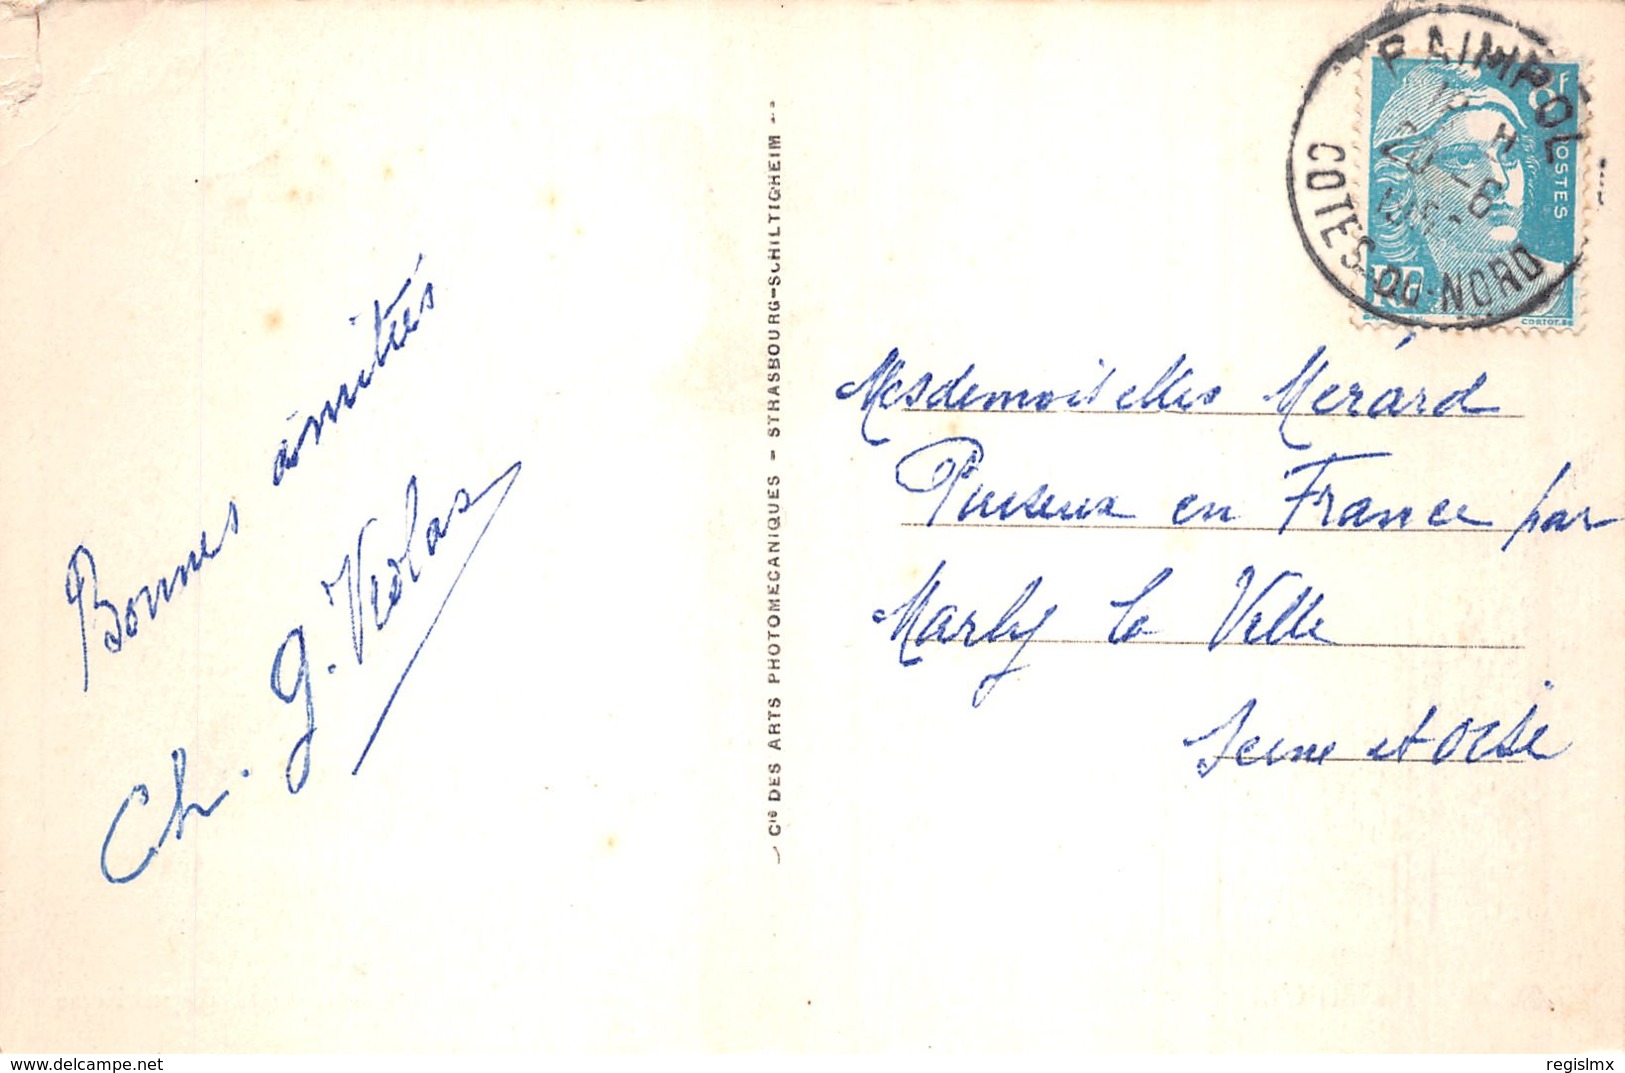 Bonnes amitiés
Ch. G. Violas
Cie DES ARTS PHOTOMECANIQUES - STRASBOURG-SCHILTIGHEIM -
PAIMPOL
H
20 -6
COTES-DU-NORD
8F
POSTES
RF
CORTOT
Mesdemoiselles Merard
Puiseux en France par
Marly la Ville
Seine et Oise
www.delcampe.net
regislmx